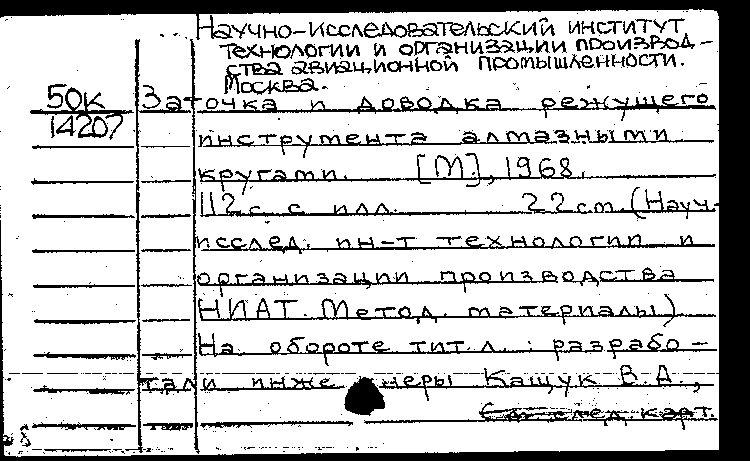 Научно-исследовательский институт
технологии и организации производ-
ства авиационной промышленности.
Москва.
50к Заточка и доводка режущего
14207 инструмента алмазными
кругами. [М], 1968.
112 с. с илл. 22 см. (Науч.-
исслед. ин-т технологии и
организации производства
НИАТ. Метод. материалы)
На обороте тит. л. : разрабо-
тали инже неры Кащук В.А.,
См. след. карт.